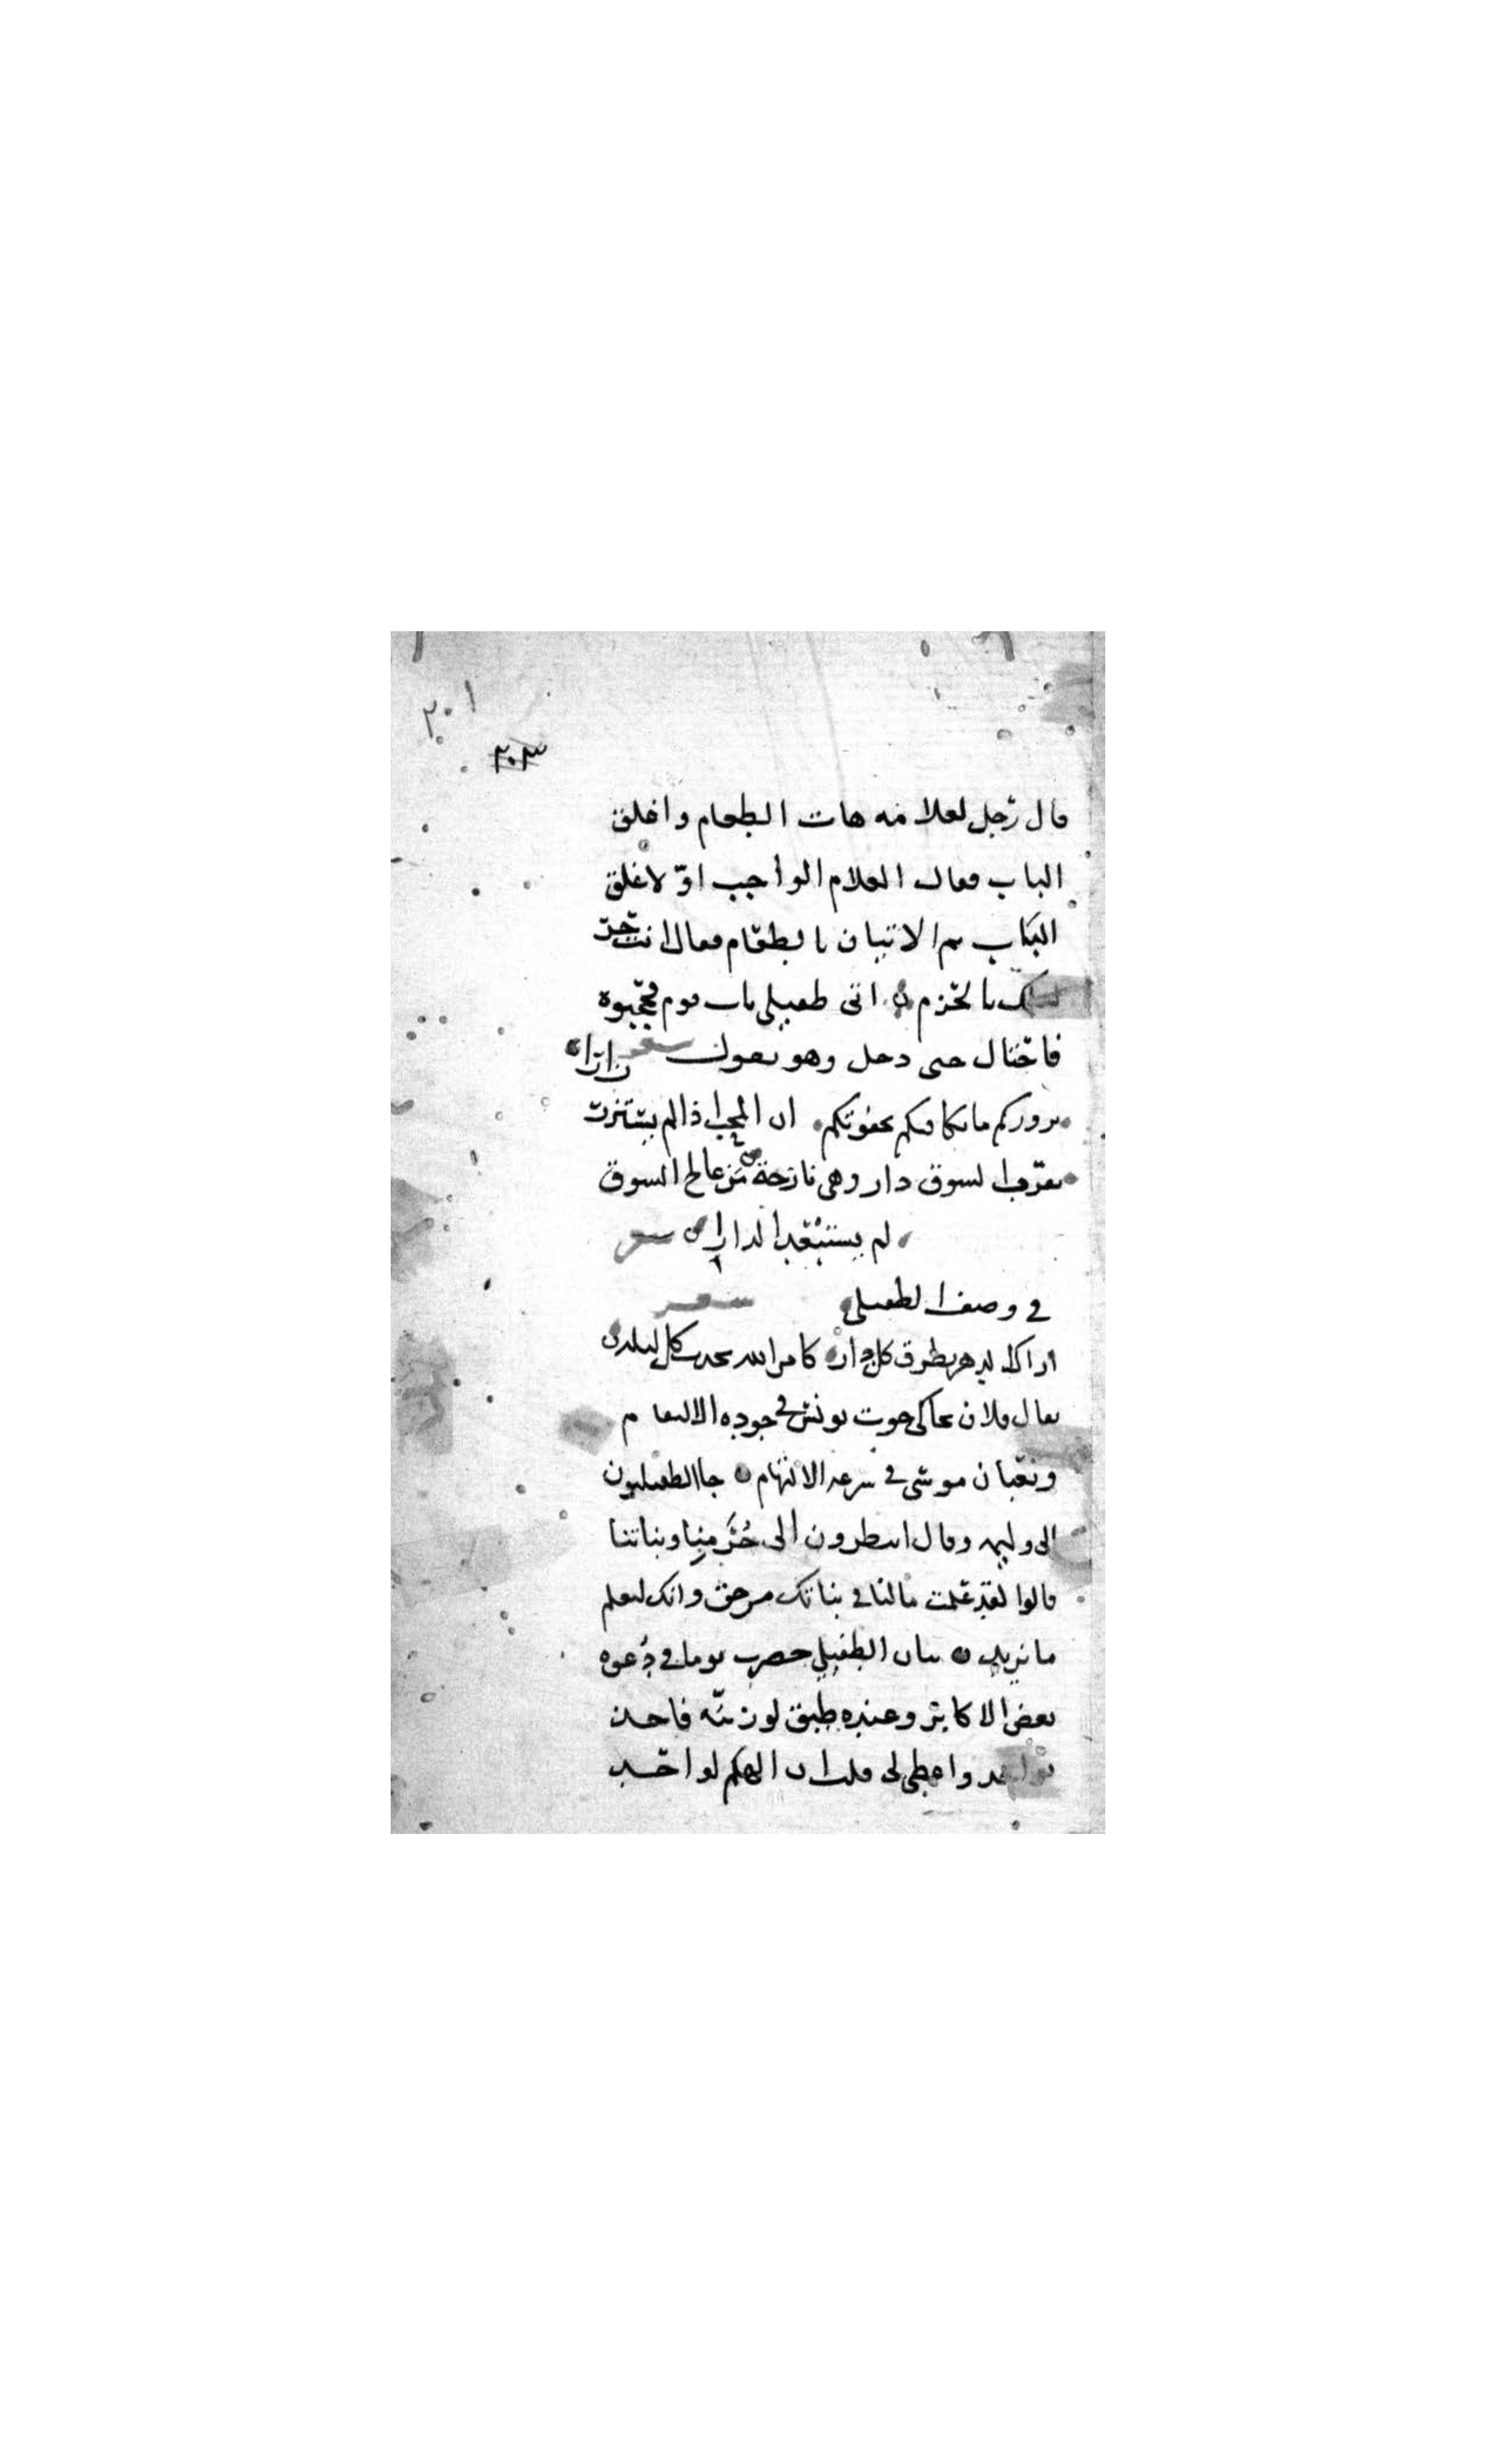 ٢٠١
٢٠٣
قال رجل لغلامه هات الطعام واغلق
الباب فقال الغلام الواجب اوّلا غلق
الباب ثم الاتيان بالطعام فقال انت حرّ
بالحزم اتى طفيلي باب قوم فحجبوه
فاحتال حتى دخل وهو يقول شعر
نزوركم ما نكافيكم بجفوتكم ان المحب اذا لم يستزر
يقرّب السوق دار وهي نازحة من عالج السوق
لم يستبعد الدارا شعر
في وصف الطفيلي شعر
اراك الدهر تطرق كل دار كامر الله يحدث كل ليله
يقال فلان يحاكى حوت يونس في جوده الالتقام
وثعبان موسى في سرعه الالتهام جا الطفيليون
الى وليمه وقال انتظرون الى حُرَمنا وبناتنا
قالوا لقد علمت ما لنا في بناتك من حق وانك لتعلم
ما نريد بنان الطفيلي حضرت يوما في دعوه
بعض الاكابر وعنده طبق لوزينه فاخذ
واعطى لى فقلت ان الهكم لواحد